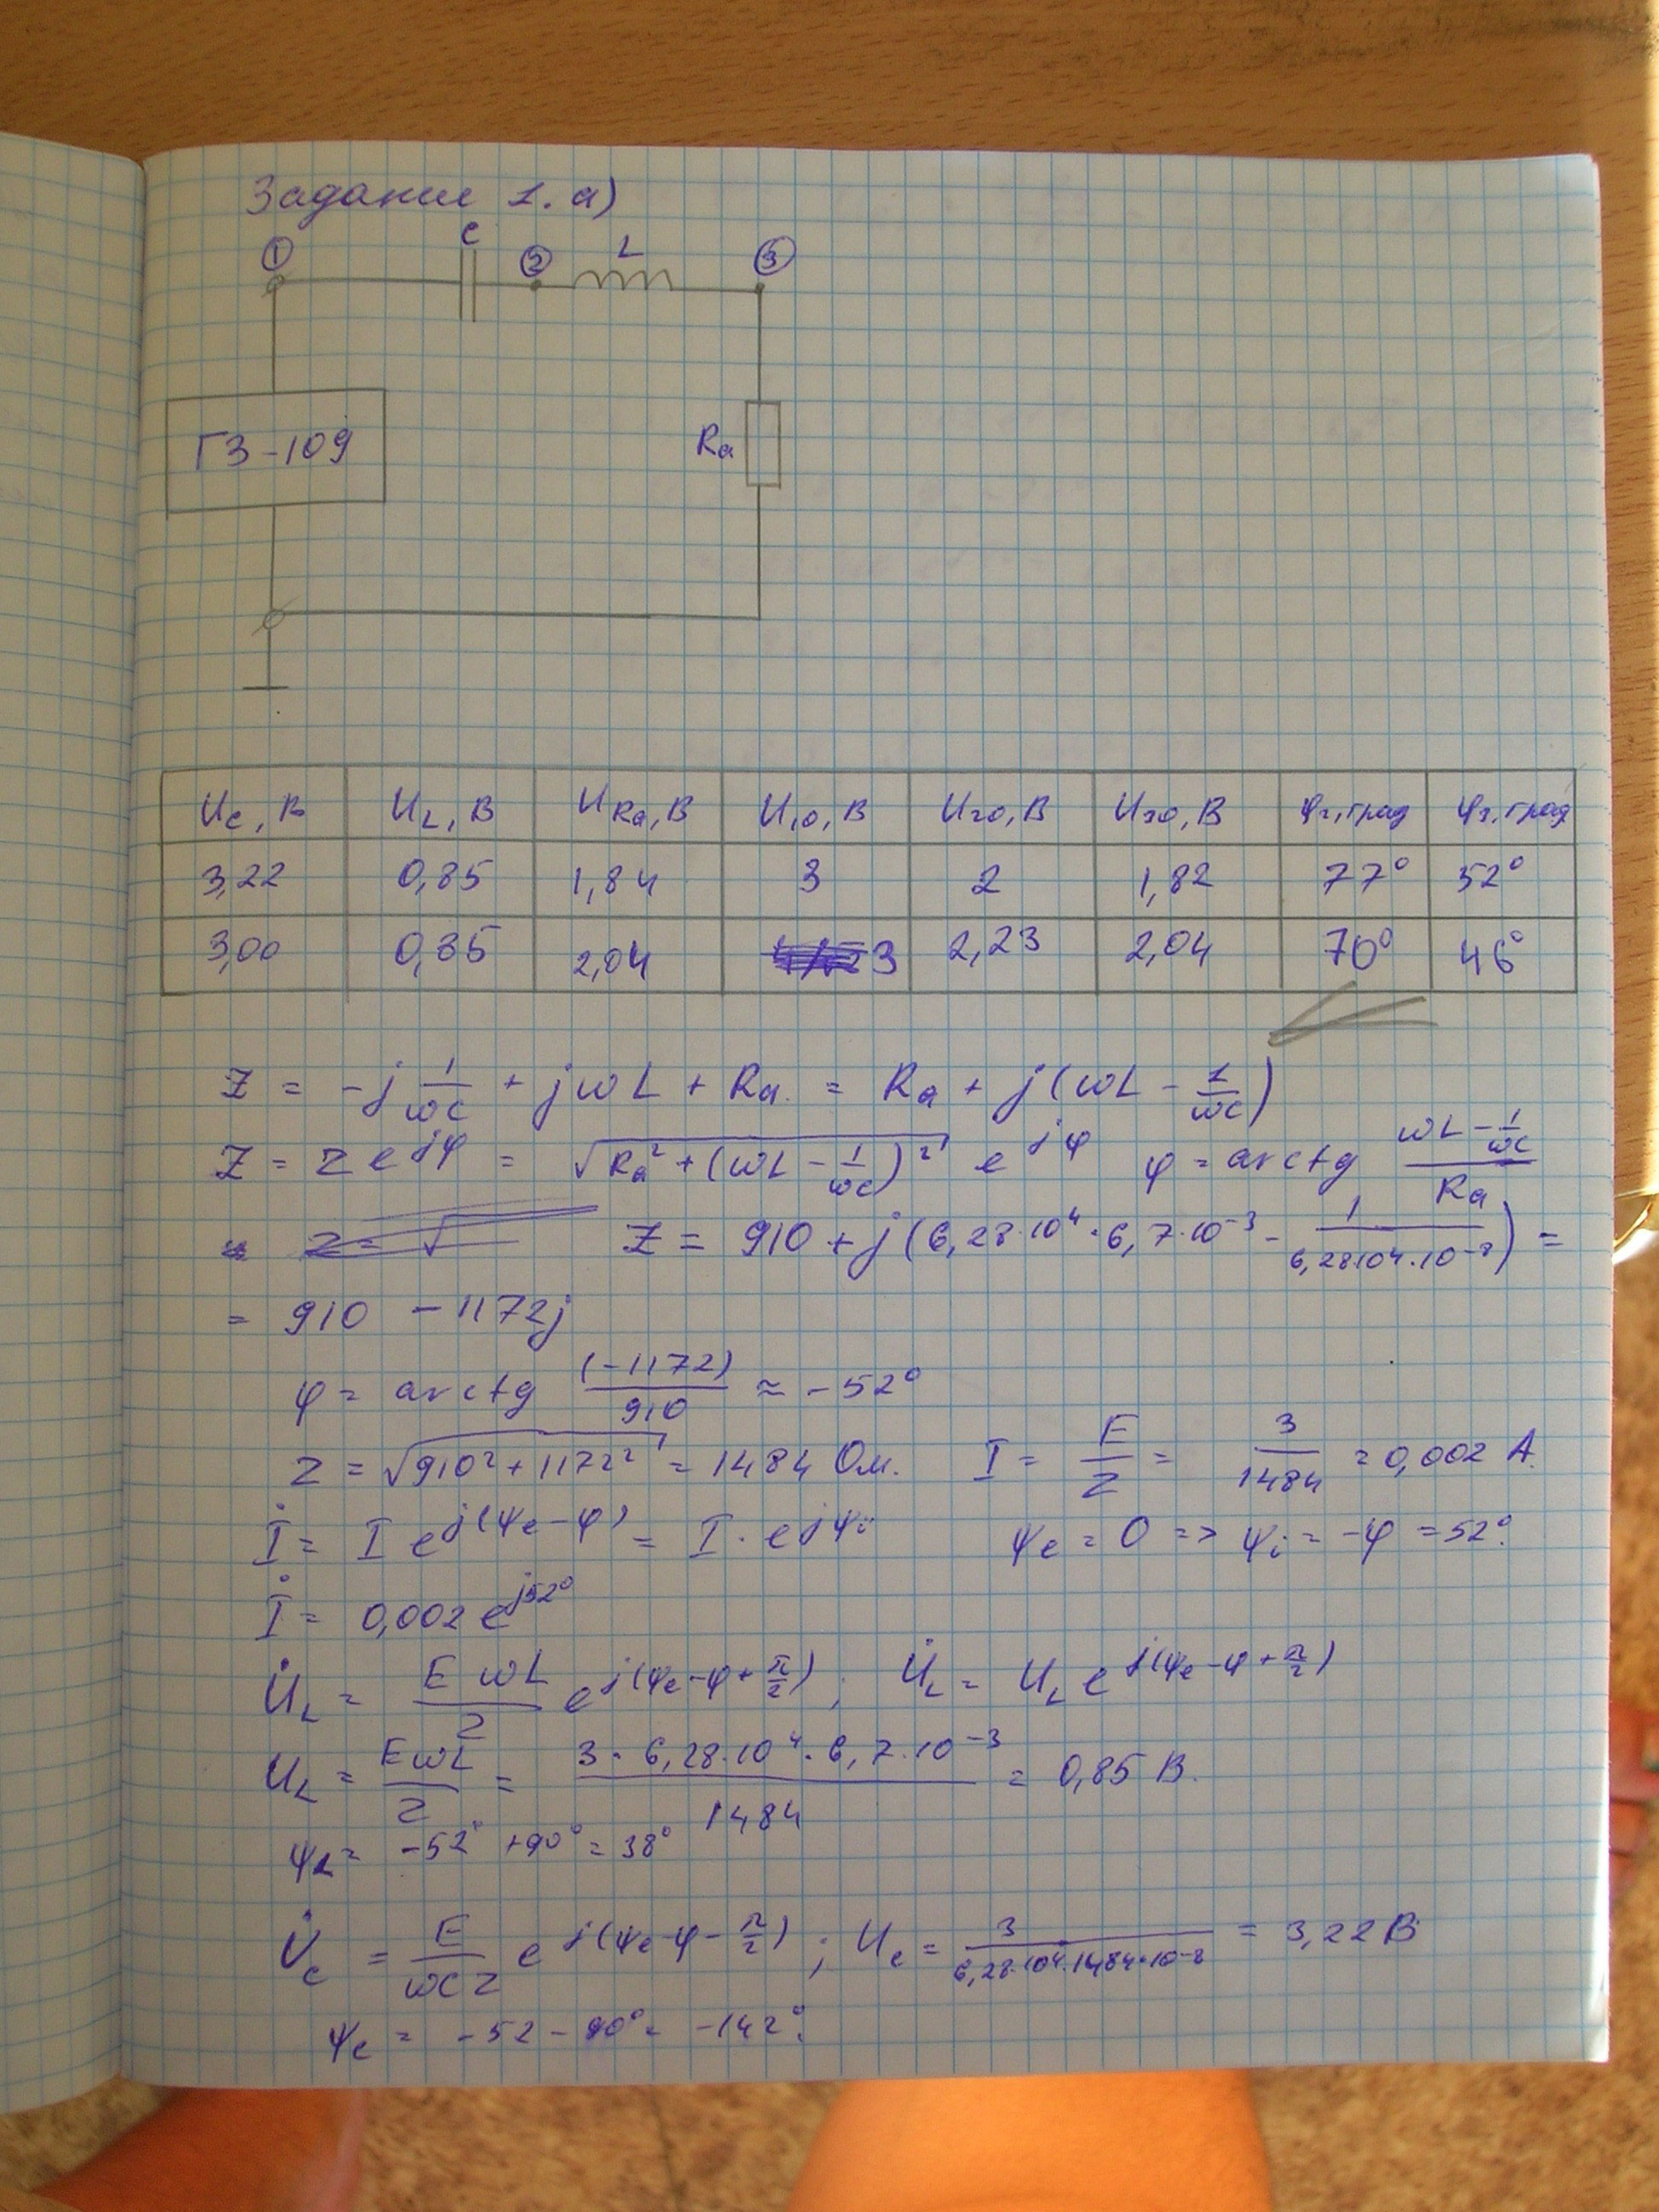 Задание 1. а)
① C ② L ③
ГЗ-109
Ra
Uc, В UL, В URa, В U10, В U20, В U30, В φ2, град φ3, град
3,22 0,85 1,84 3 2 1,82 77° 52°
3,00 0,85 2,04 3 2,23 2,04 70° 46°
Z = -j 1/ωC + jωL + Ra = Ra + j(ωL - 1/ωC)
Z = z e^jφ = √(Ra² + (ωL - 1/ωC)²) e^jφ φ = arctg (ωL - 1/ωC)/Ra
Z = 910 + j(6,28·10⁴·6,7·10⁻³ - 1/(6,28·10⁴·10⁻⁸)) =
= 910 - 1172j
φ = arctg (-1172)/910 ≈ -52°
z = √(910² + 1172²) = 1484 Ом. I = E/z = 3/1484 = 0,002 А.
İ = I e^j(ψe-φ) = I · e^jψi ψe = 0 => ψi = -φ = 52°.
İ = 0,002 e^j52°
U̇L = EωL/z e^j(ψe-φ+π/2); U̇L = UL e^j(ψe-φ+π/2)
UL = EωL/z = 3·6,28·10⁴·6,7·10⁻³/1484 = 0,85 В.
ψL = -52° + 90° = 38°
U̇c = E/ωCz e^j(ψe-φ-π/2); Uc = 3/(6,28·10⁴·1484·10⁻⁸) = 3,22 В
ψc = -52 - 90° = -142°.